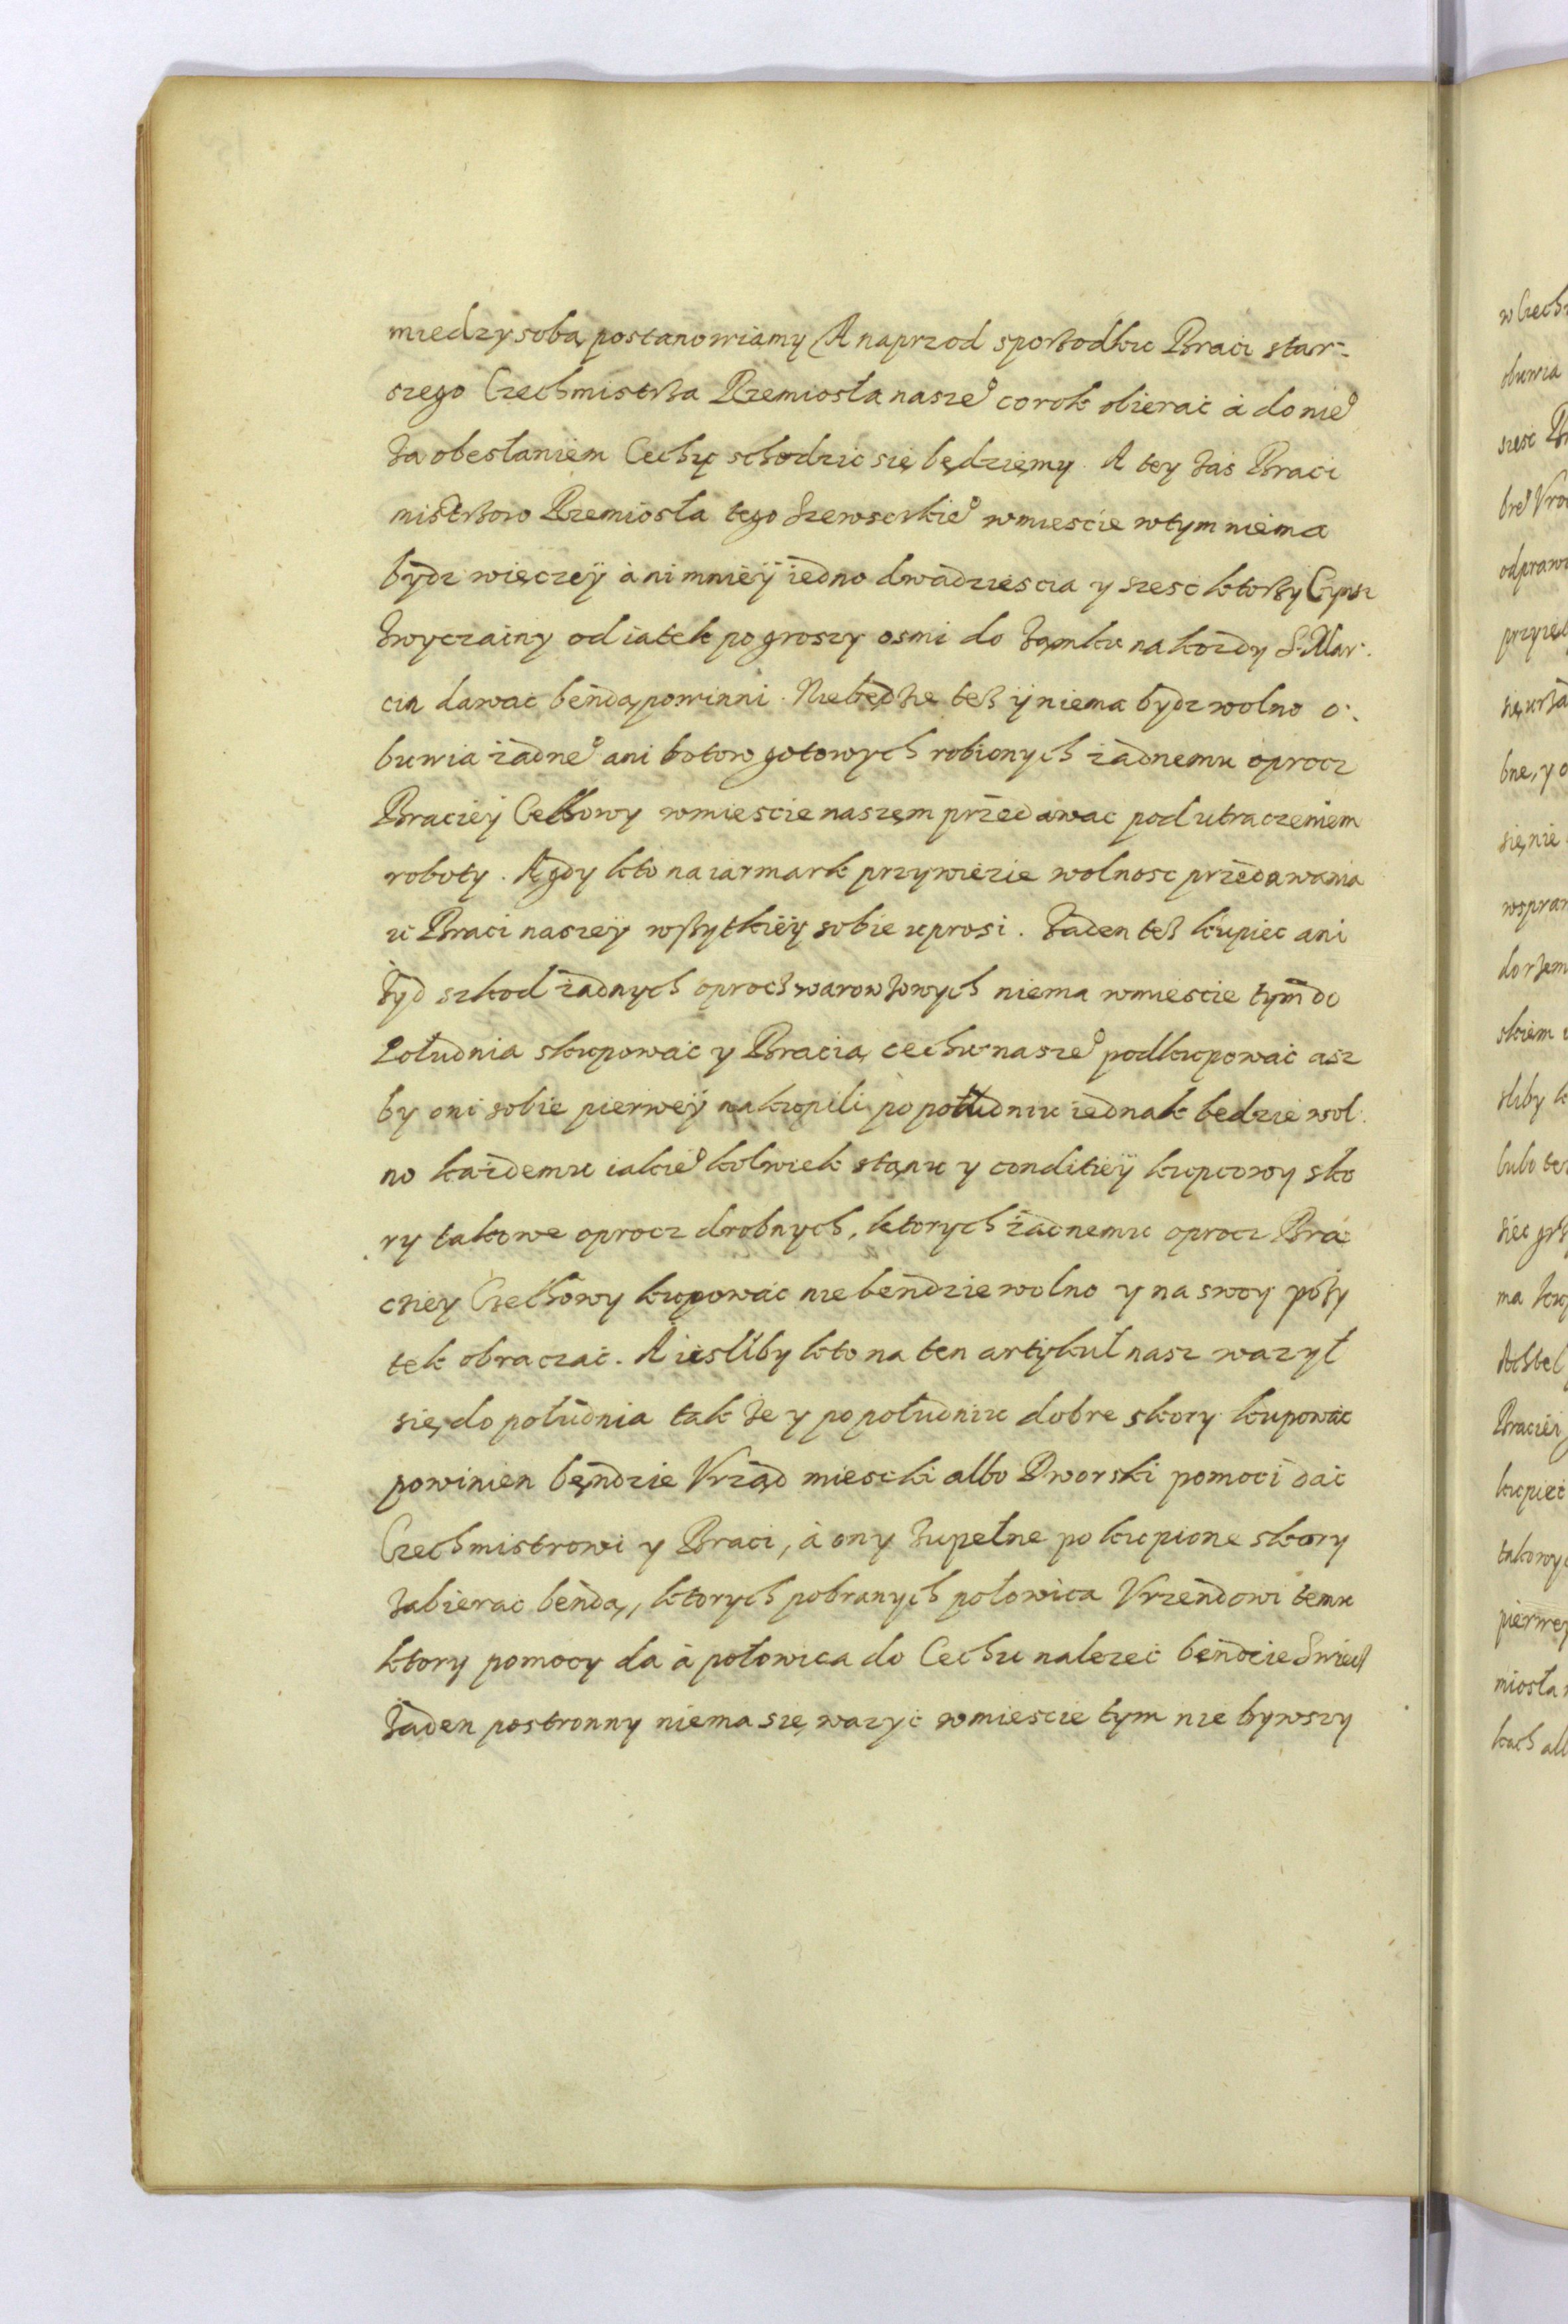 miedzy sobą postanowiamy A naprzod sporzodku Braci star-
szego Czechmistrza Rzemiosła nasze° corok obierać á do nie°
za obesłaniem Cechu schodzic się będziemy. A tey zas Braci
mistrzow Rzemiosła tego Szewsckie° wmiescie wtym niema
bydz więczey áni mniey iedno dwadziescia y szesc ktorzy Cynsz
zwyczainy od iatek po groszy osmi do zamku na kozdy S. Mar-
cin dawac bendą powinni. Niebędzie tesz y niema bydz wolno o-
buwia żadne° ani botow gotowych robionych żadnemu oprocz
Braciey Cechowy wmiescie naszem przedawac pod utraczeniem
roboty. A gdy kto na iarmark przywiezie wolnosc przedawania
u Braci naszey wszytkiey sobie uprosi. Zaden tesz kupiec ani
Żyd szkod żadnych oprocz warowzowych niema wmiescie tym do
Południa skupować y Bracią cechu nasze° podkupować asz
by oni sobie pierwey nakupili po południu iednak bedzie wol
no każdemu iakie°kolwiek stanu y conditiey kupcowy sko
ry takowe oprocz drobnych, ktorych żadnemu oprocz Bra
cziey Czechowy kupować nie bendzie wolno y na swoy pozy
tek obraczać. A iesliby kto na ten artykuł nasz wazył
się do południa tak ze y po południu dobre skory kupowac
powinien będzie Vrząd miescki albo Dworski pomoci dać
Czechmistrowi y Braci, á ony zupełne po kupione skory
zabierac bendą, ktorych pobranych połowica Vrzendowi temu
ktory pomocy da á połowica do Cechu nalezeć bendzie
Żaden postronny niema się wazyc wmiescie tym nie bywszy
w Czech
obuwia
szesc
odprawi
bne, y o
się nie
skiem
sliby k
lubo te
Braciei
kupiec
takowyc
pierwey
miosła
kach alb